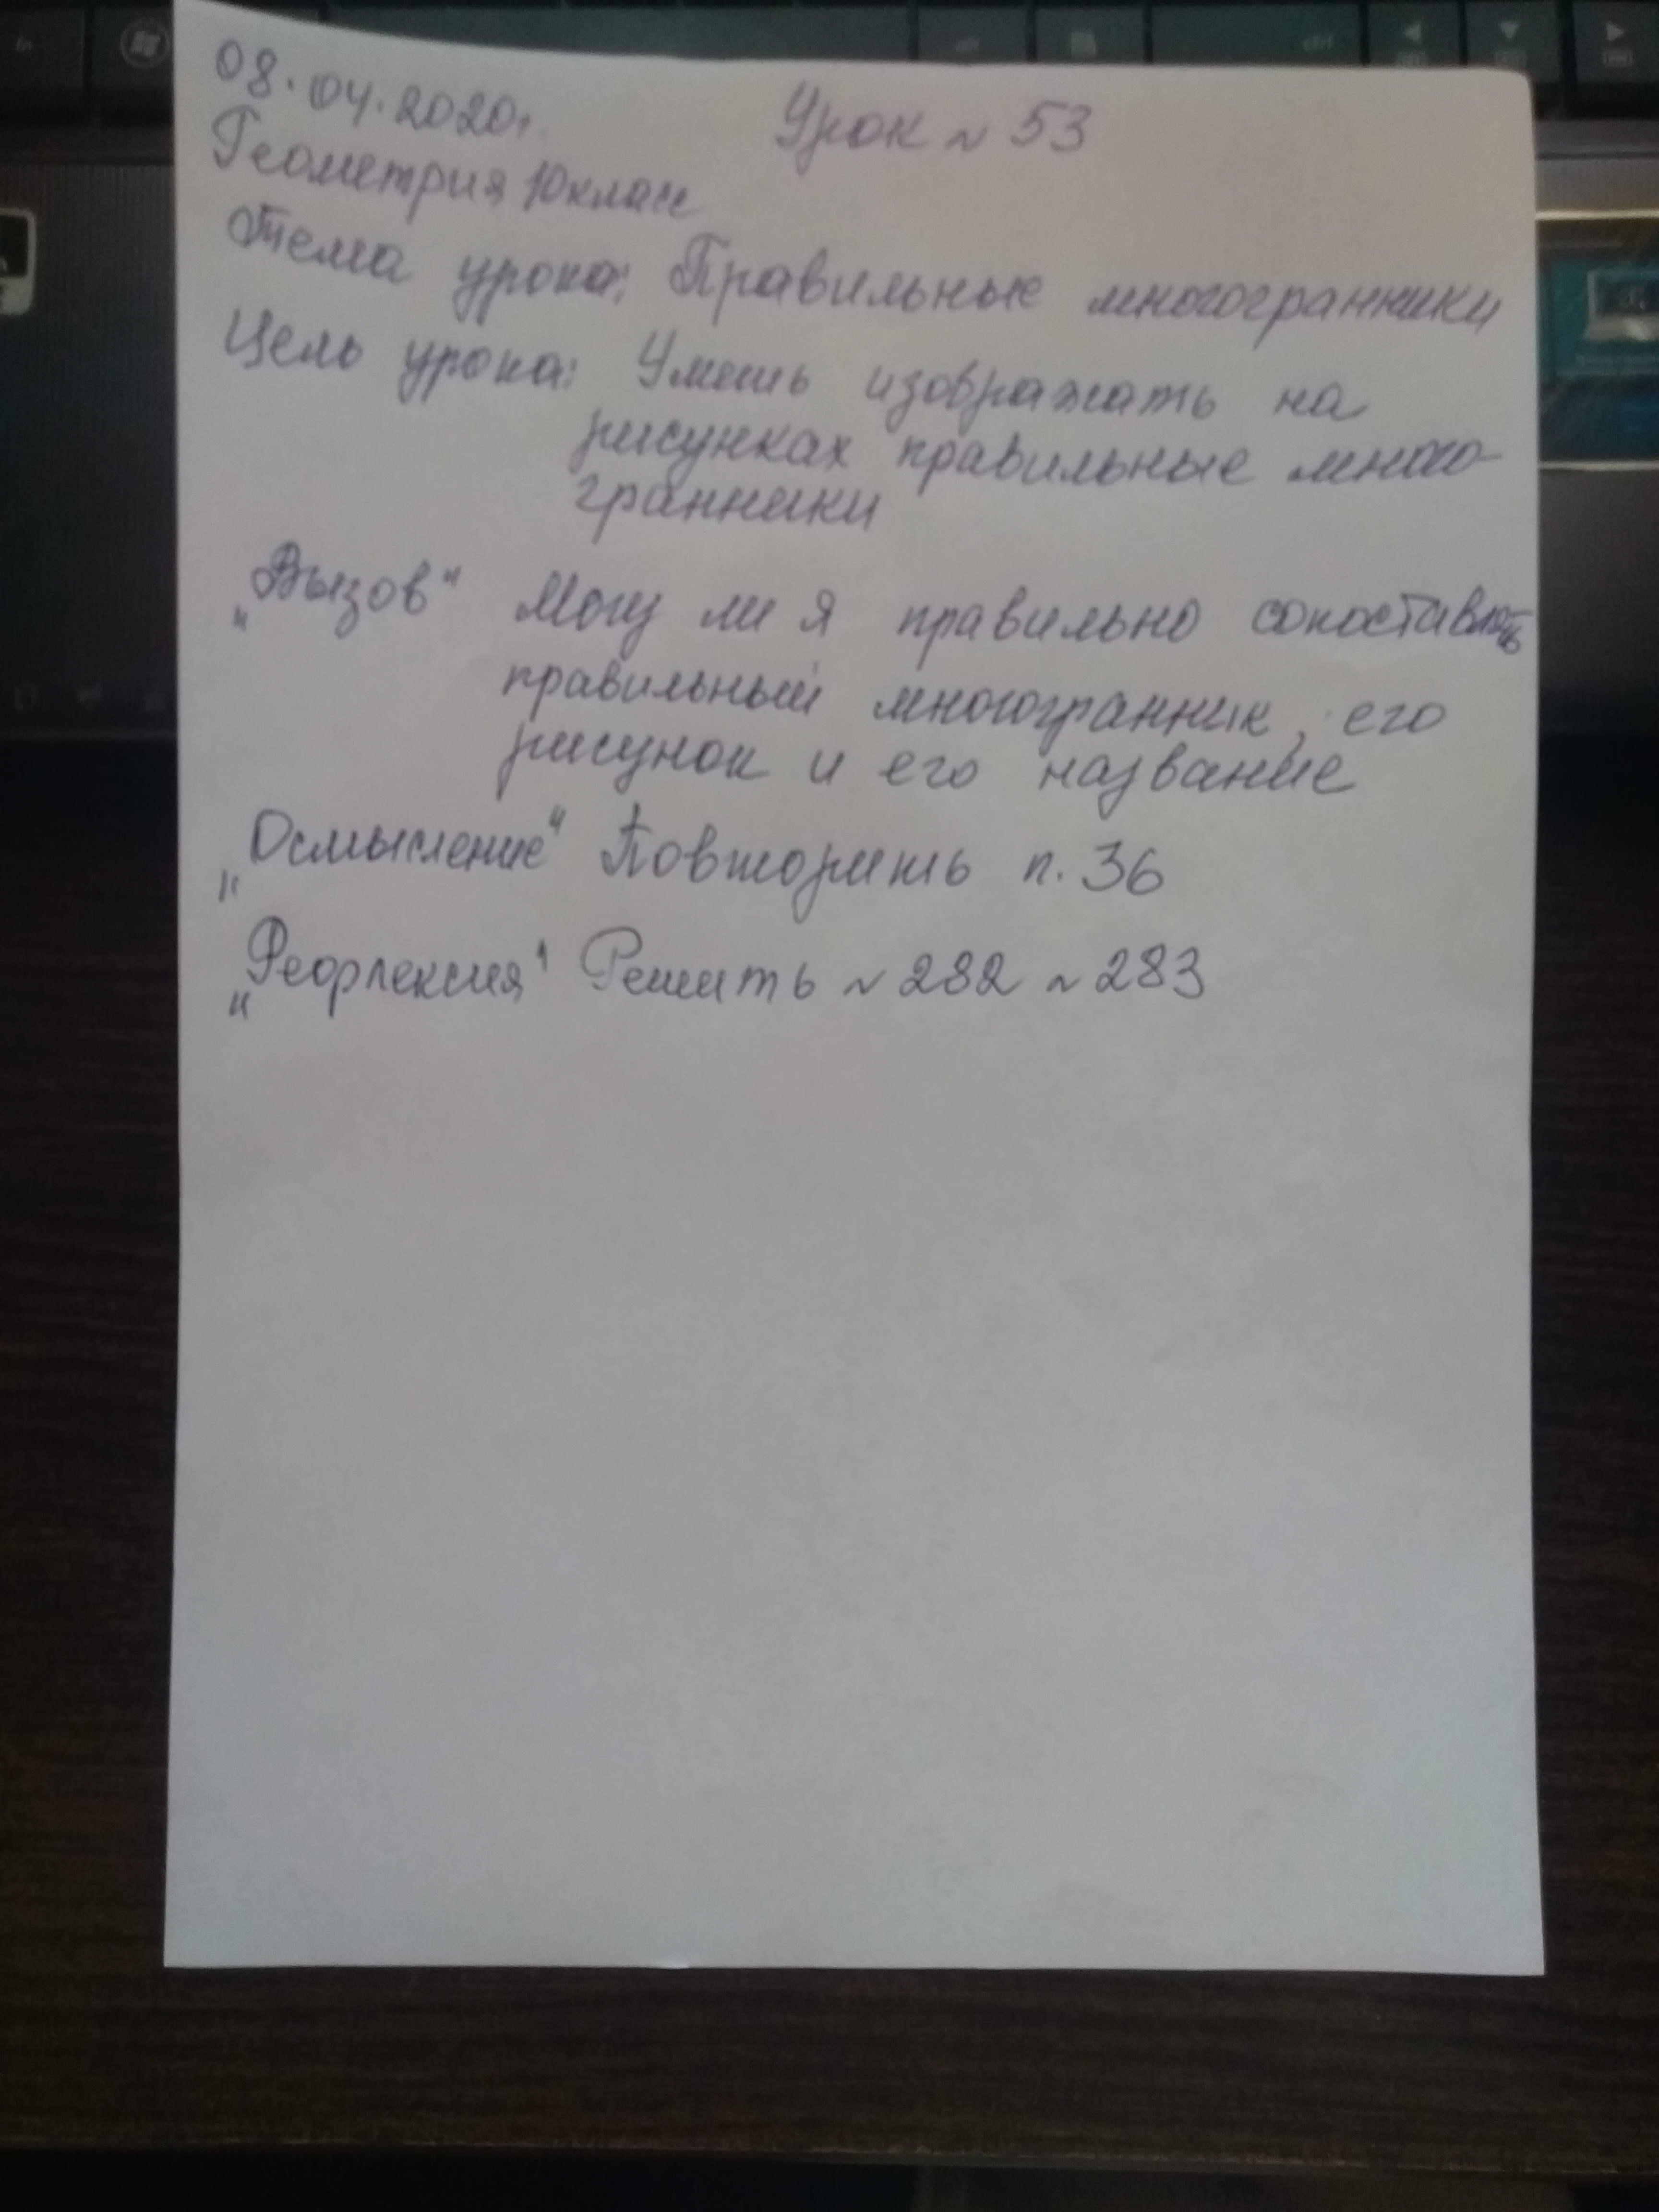 08.04.2020г. Урок № 53
Геометрия 10 класс
Тема урока: Правильные многогранники
Цель урока: Уметь изображать на
рисунках правильные много-
гранники
„Вызов“ Могу ли я правильно сопоставлять
правильный многогранник, его
рисунок и его название
„Осмысление“ Повторить п. 36
„Рефлексия“ Решить № 282 № 283